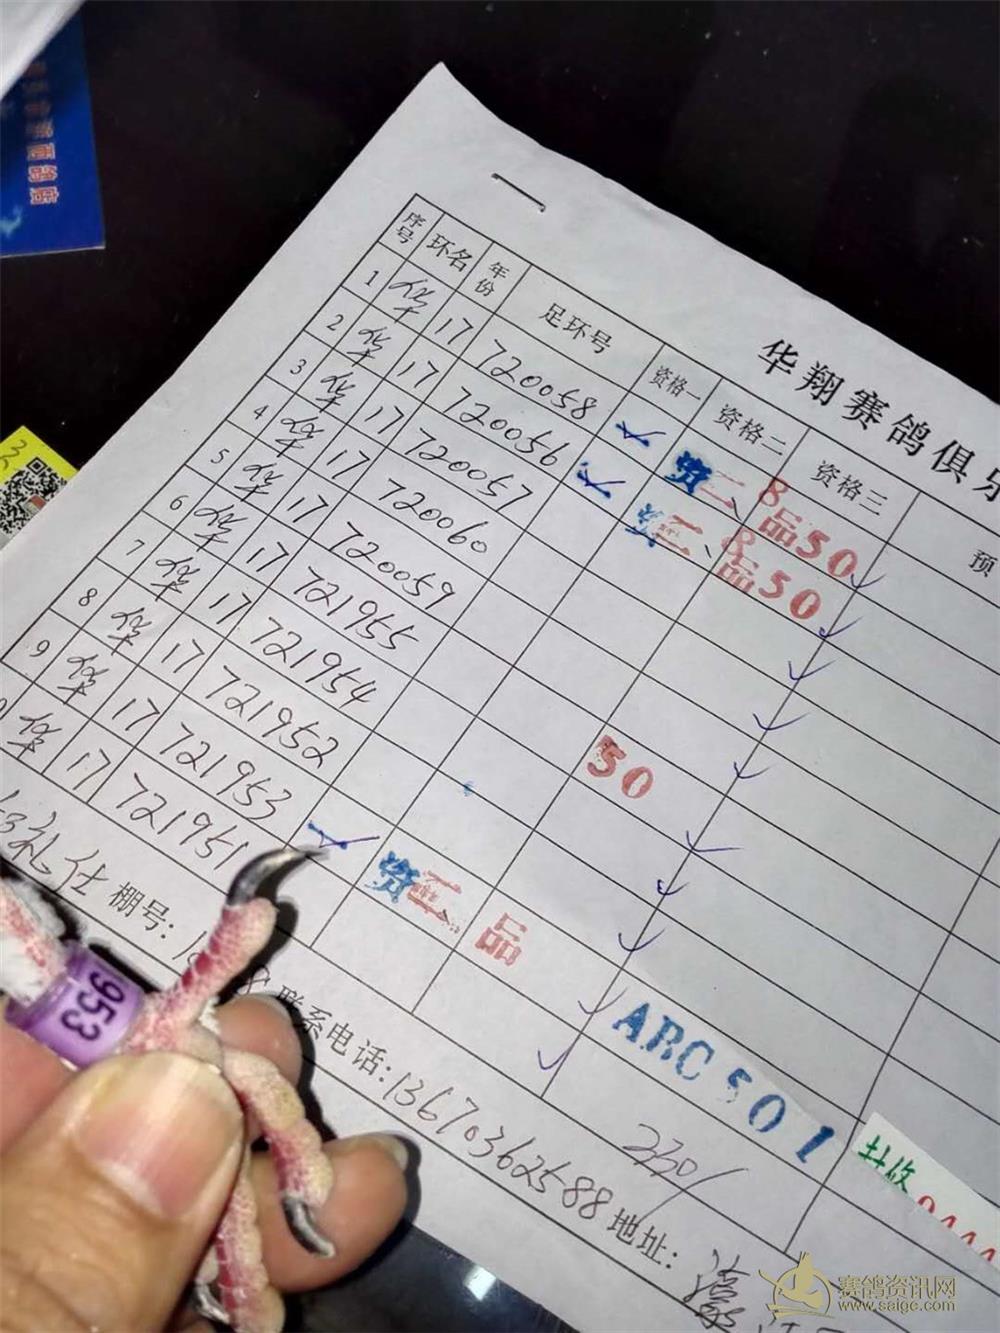 华翔赛鸽俱乐
序号 环名 年份 足环号 资格一 资格二 资格三 预
1 华 17 720058
2 华 17 720056 资二、B品50
3 华 17 720057 资二、B品50
4 华 17 720060
5 华 17 720059
6 华 17 721955
7 华 17 721954 50
8 华 17 721952
9 华 17 721953
华 17 721951 资二、品
ABC501
礼仕 棚号:
联系电话:13670362588 地址:
953
赛鸽资讯网
www.saige.com